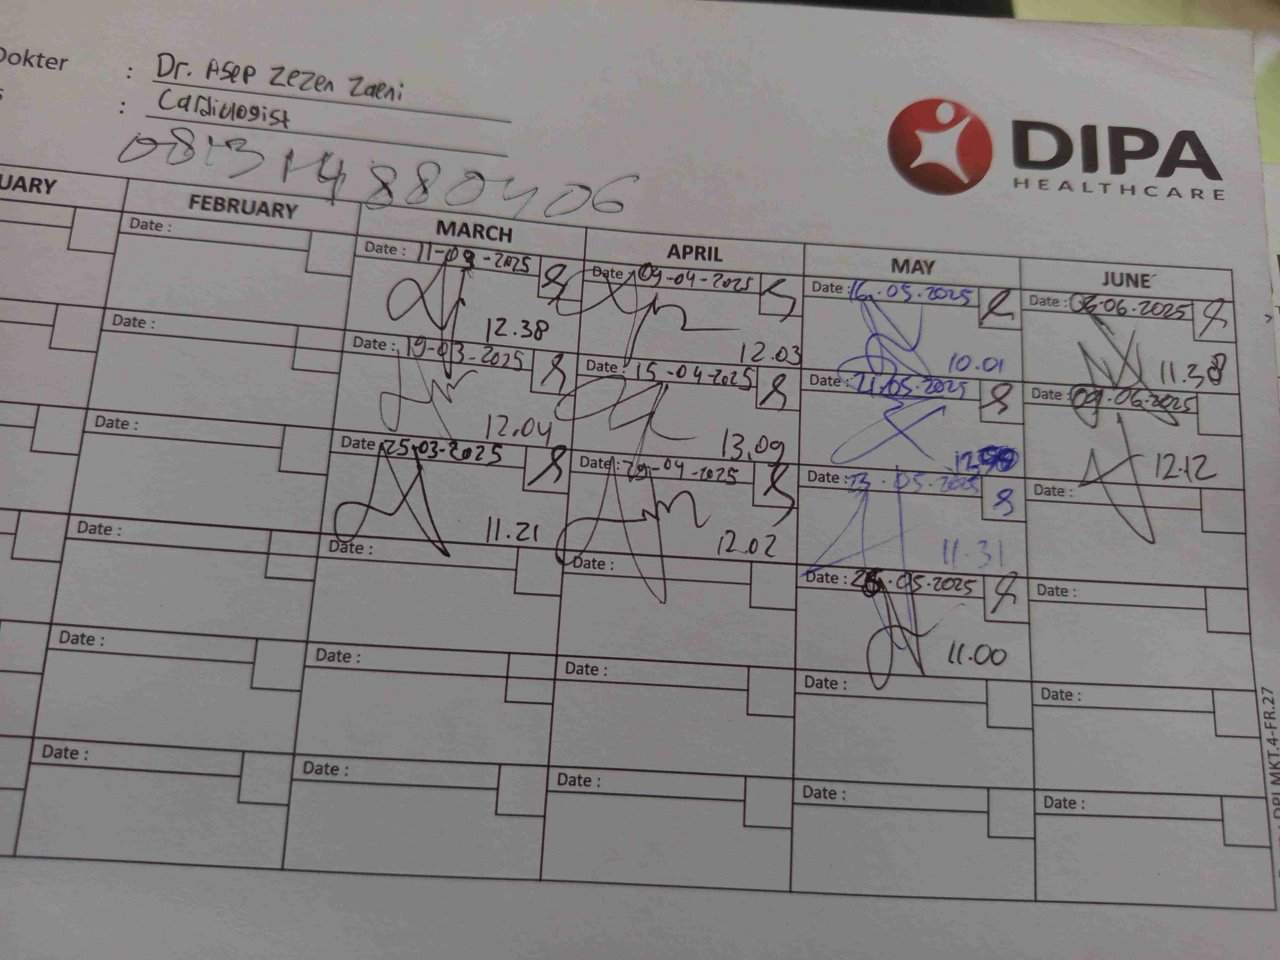 Dokter : Dr. Asep Zezen Zaeni
s : Cardiologist
DIPA
HEALTHCARE
UARY FEBRUARY MARCH APRIL MAY JUNE
Date : Date : 11-03-2025 Date : 09-04-2025 Date : 16.05.2025 Date : 03.06.2025
12.38 12.03 10.01 11.38
Date : Date : 19-03-2025 Date : 15-04-2025 Date : 21.05.2025 Date : 09.06.2025
12.04 13.09 12.12
Date : Date : 25-03-2025 Date : 29-04-2025 Date : 23.05.2025 Date :
11.21 12.02 11.31
Date : Date : Date : Date : .05.2025 Date :
11.00
Date : Date : Date : Date : Date :
Date : Date : Date : Date : Date :
MKT.4-FR.27